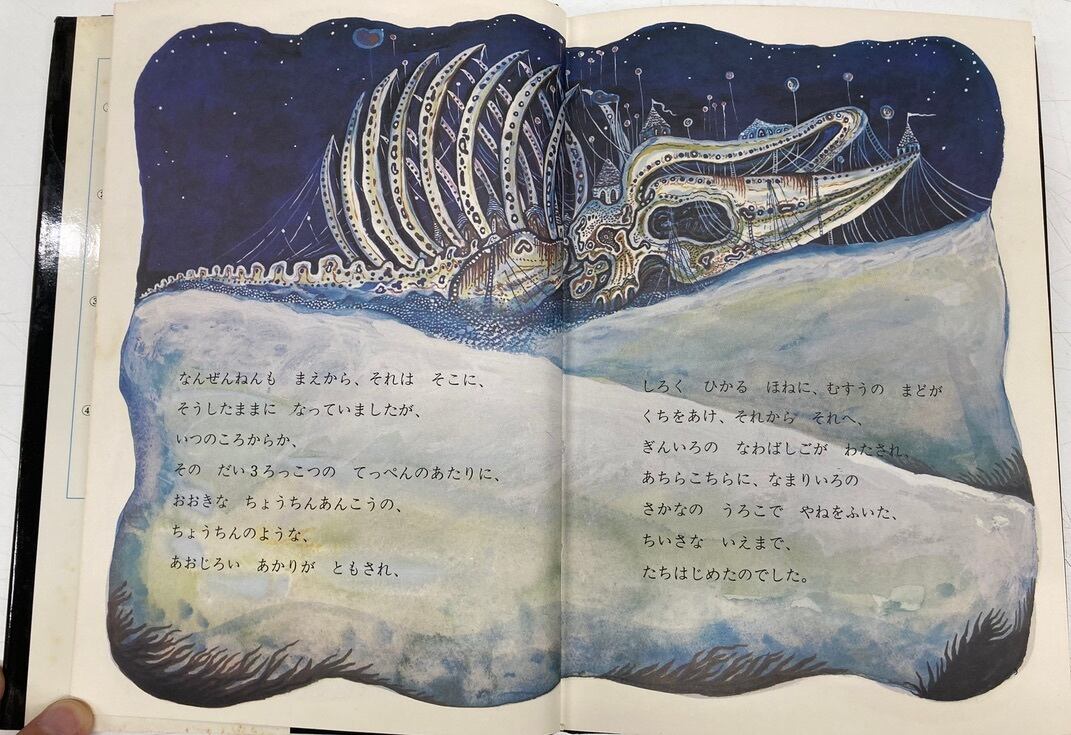 なんぜんねんも　まえから、それは　そこに、
そうしたままに　なっていましたが、
いつのころからか、
その　だい3ろっこつの　てっぺんのあたりに、
おおきな　ちょうちんあんこうの、
ちょうちんのような、
あおじろい　あかりが　ともされ、
しろく　ひかる　ほねに、むすうの　まどが
くちをあけ、それから　それへ、
ぎんいろの　なわばしごが　わたされ、
あちらこちらに、なまりいろの
さかなの　うろこで　やねをふいた、
ちいさな　いえまで、
たちはじめたのでした。
③
④